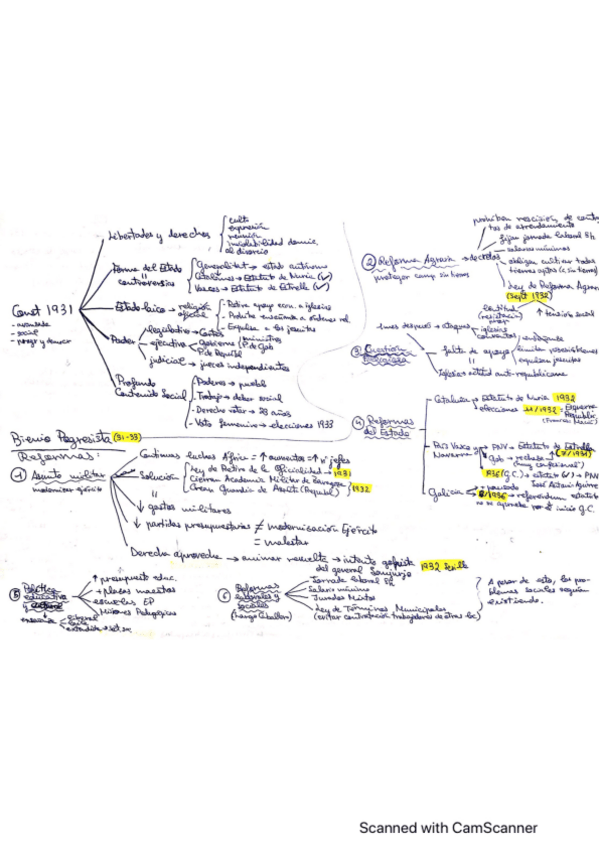 Const 1931
- avanzada
- social
- progr y democr
Libertades y derechos
culto
expresión
reunión
inviolabilidad domic.
al divorcio
Forma del Estado
controversias
Generalitat → estado autónomo
Catalunes → Estatuto de Nuria (✓)
Vascos → Estatuto de Estella (✓)
Estado laico → religión
oficial
- Retira apoyo econ. a iglesias
- Prohíbe enseñanza a órdenes rel.
- Expulsa a los jesuitas
Poder
legislativo → Cortes
ejecutivo → Gobierno
ministros
P. de Gob
Pde Repúbl
judicial → jueces independientes
Profundo
Contenido Social
- Poderes → puebl
- Trabajo → deber social
- Derecho votar → 23 años
- Voto femenino → elecciones 1933
Bienio Progresista (31-33)
Reformas:
1 Asunto militar
modernizar ejército
Continuas luchas África = ↑ aumentos = ↑ nº jefes
Solución
Ley de Retiro de la Oficialidad → 1931
Cierran Academia Militar de Zaragoza
Crean Guardia de Asalto (Repúbl.)
1932
↓ gastos militares
↓ partidas presupuestarias ≠ modernización Ejército
= malestar
Derecha aprovecha → animar revuelta → intento golpista 1932 Sevilla
del general Sanjurjo
2 Reforma Agraria → decretos
proteger camp sin tierras
prohíben rescisión de contra
tos de arrendamiento
fijar jornada laboral 8h
salarios mínimos
obligan cultivar todas
tierras aptas (c sin tierras)
Ley de Reforma Agraria
(Sept 1932)
lentitud
(resistencia)
↑ tensión social
3 Cuestión
Religiosa
unos después → ataques → iglesias
conventos
falta de apoyo
expulsan jesuitas
Iglesia = entidad anti-republicana
4 Reformas
del Estado
Cataluña → Estatuto de Nuria 1932
elecciones 11/1932 = Esquerra
Republic.
(Francesc Macià)
País Vasco y
Navarra
PNV → Estatuto de Estella
Gob → rechaza (7/1931)
(muy confesional)
1936 (G.C.) → estatuto (✓) → PNV
José Antonio Aguirre
Galicia
+ pausado
6/1936 → referendum estatuto
no se aprueba por inicio G.C.
5 Política
educativa
y cultural
↑ presupuesto educ.
+ plazas maestros
escuelas EP
Misiones Pedagógicas
enseñanza
liberal
laica
6 Reformas
laborales y
sociales
(Largo Caballero)
Jornada laboral 8h
Salario mínimo
Jurados Mixtos
Ley de Términos Municipales
(evitar contratación trabajadores de otras loc)
A pesar de esto, los pro-
blemas sociales seguían
existiendo.
Scanned with CamScanner